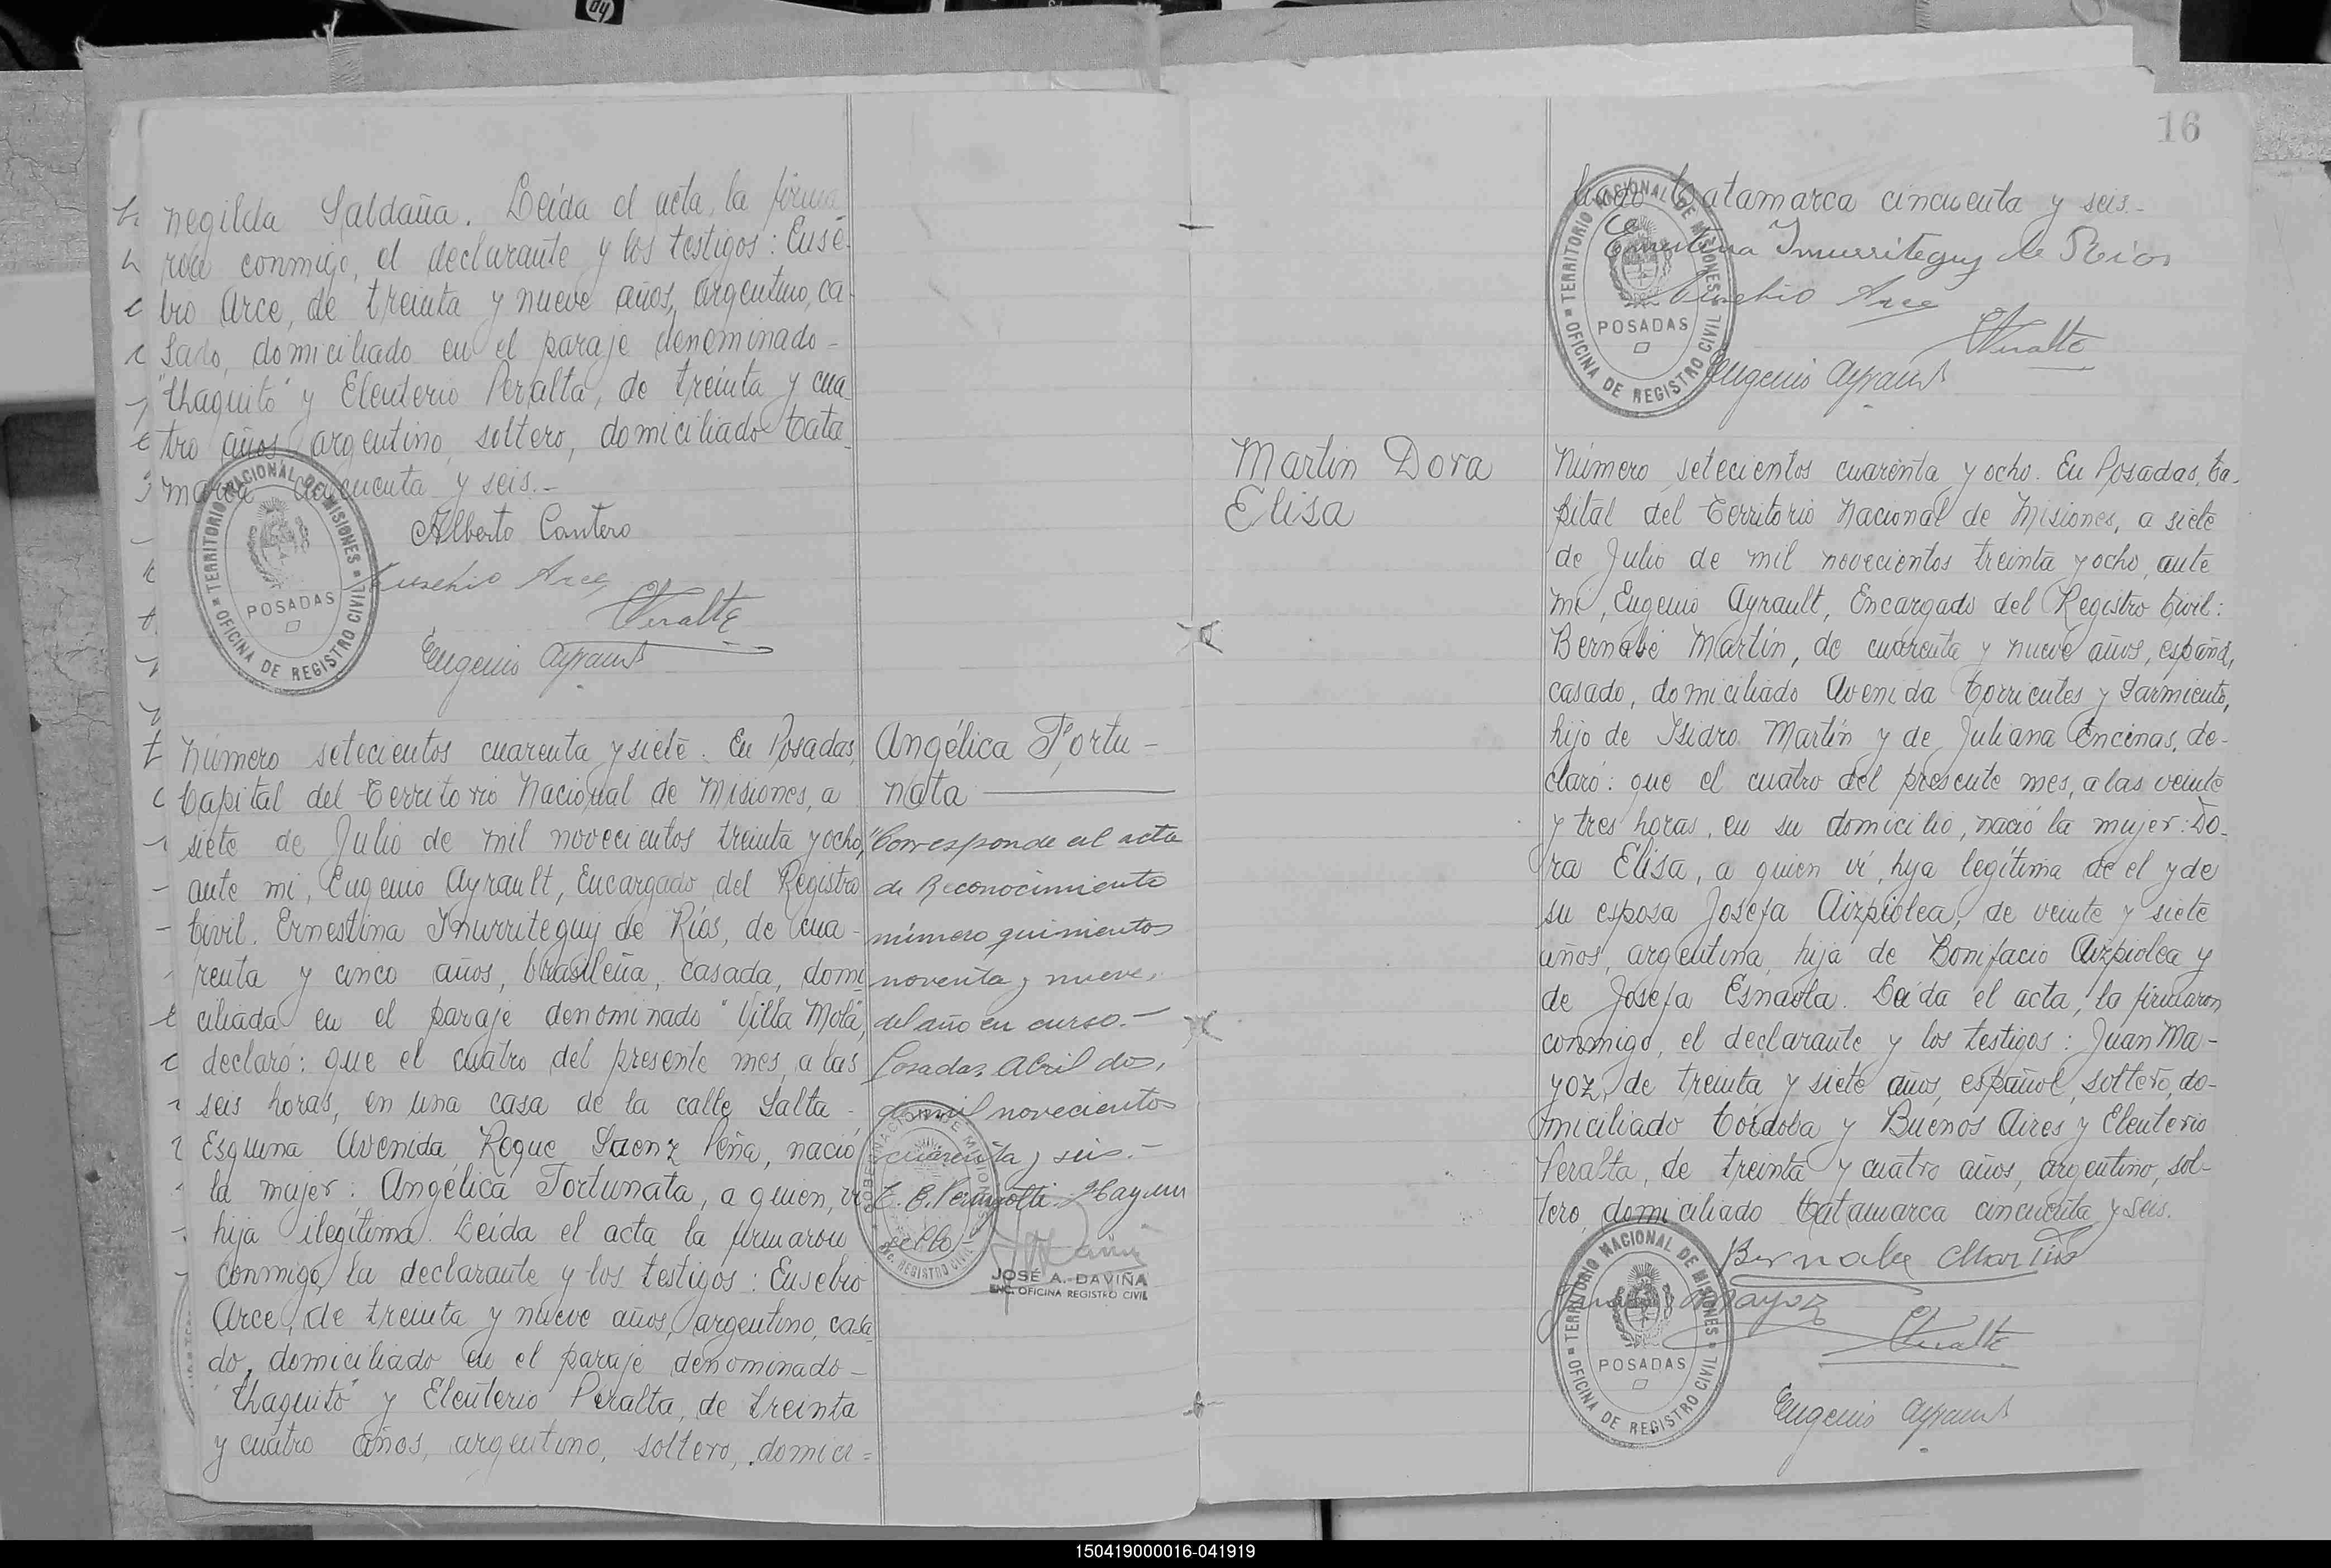 negilda Saldaña. Leída el acta, la firma
ron conmigo, el declarante y los testigos: Euse
bio Arce, de treinta y nueve años, argentino, ca
sado, domiciliado en el paraje denominado -
"Chaquito" y Eleuterio Peralta, de treinta y cua
tro años, argentino, soltero, domiciliado Cata
marca cincuenta y seis.-
Alberto Cantero
Eusebio Arce
EPeralta
Eugenio Ayrault
TERRITORIO NACIONAL DE MISIONES
POSADAS
OFICINA DE REGISTRO CIVIL
Número setecientos cuarenta y siete. En Posadas,
Capital del Territorio Nacional de Misiones, a
siete de Julio de mil novecientos treinta y ocho,
ante mi, Eugenio Ayrault, Encargado del Registro
Civil. Ernestina Inurriteguy de Ríos, de cua-
renta y cinco años, brasileña, casada, domi
ciliada en el paraje denominado "Villa Mola",
declaró: que el cuatro del presente mes, a las
seis horas, en una casa de la calle Salta -
Esquina Avenida Roque Saenz Peña, nació
la mujer: Angélica Fortunata, a quien, vi
hija ilegítima. Leída el acta la firmaron
conmigo, la declarante y los testigos: Eusebio
Arce, de treinta y nueve años, argentino, casa
do, domiciliado en el paraje denominado -
"Chaquito" y Eleuterio Peralta, de treinta
y cuatro años, argentino, soltero, domici=
Angélica Fortu-
nata
"Corresponde al acta
de Reconocimiento
número quinientos
noventa y nueve,
del año en curso.-
Posadas, Abril dos,
de mil novecientos
cuarenta y seis.-
sello
JOSÉ A. DAVIÑA
ENC. OFICINA REGISTRO CIVIL
16
liado Catamarca cincuenta y seis.-
Ernestina Inurriteguy de Rios
Eusebio Arce
EPeralta
Eugenio Ayrault
TERRITORIO NACIONAL DE MISIONES
POSADAS
OFICINA DE REGISTRO CIVIL
Martin Dora
Elisa
Número setecientos cuarenta y ocho. En Posadas, Ca-
pital del Territorio Nacional de Misiones, a siete
de Julio de mil novecientos treinta y ocho, ante
mi, Eugenio Ayrault, Encargado del Registro Civil:
Bernabé Martín, de cuarenta y nueve años, español,
casado, domiciliado Avenida Corrientes y Sarmiento,
hijo de Isidro Martín y de Juliana Encinas, de-
claró: que el cuatro del presente mes, a las veinte
y tres horas, en su domicilio, nació la mujer: Do-
ra Elisa, a quien vi, hija legítima de el y de
su esposa Josefa Aizpiolea, de veinte y siete
años, argentina, hija de Bonifacio Aizpiolea y
de Josefa Esnaola. Leída el acta, la firmaron
conmigo, el declarante y los testigos: Juan Ma-
yoz, de treinta y siete años, español, soltero, do-
miciliado Córdoba y Buenos Aires y Eleuterio
Peralta, de treinta y cuatro años, argentino, sol-
tero, domiciliado Catamarca cincuenta y seis.
Bernabe Martin
Juan Mayoz
EPeralta
Eugenio Ayrault
TERRITORIO NACIONAL DE MISIONES
POSADAS
OFICINA DE REGISTRO CIVIL
150419000016-041919